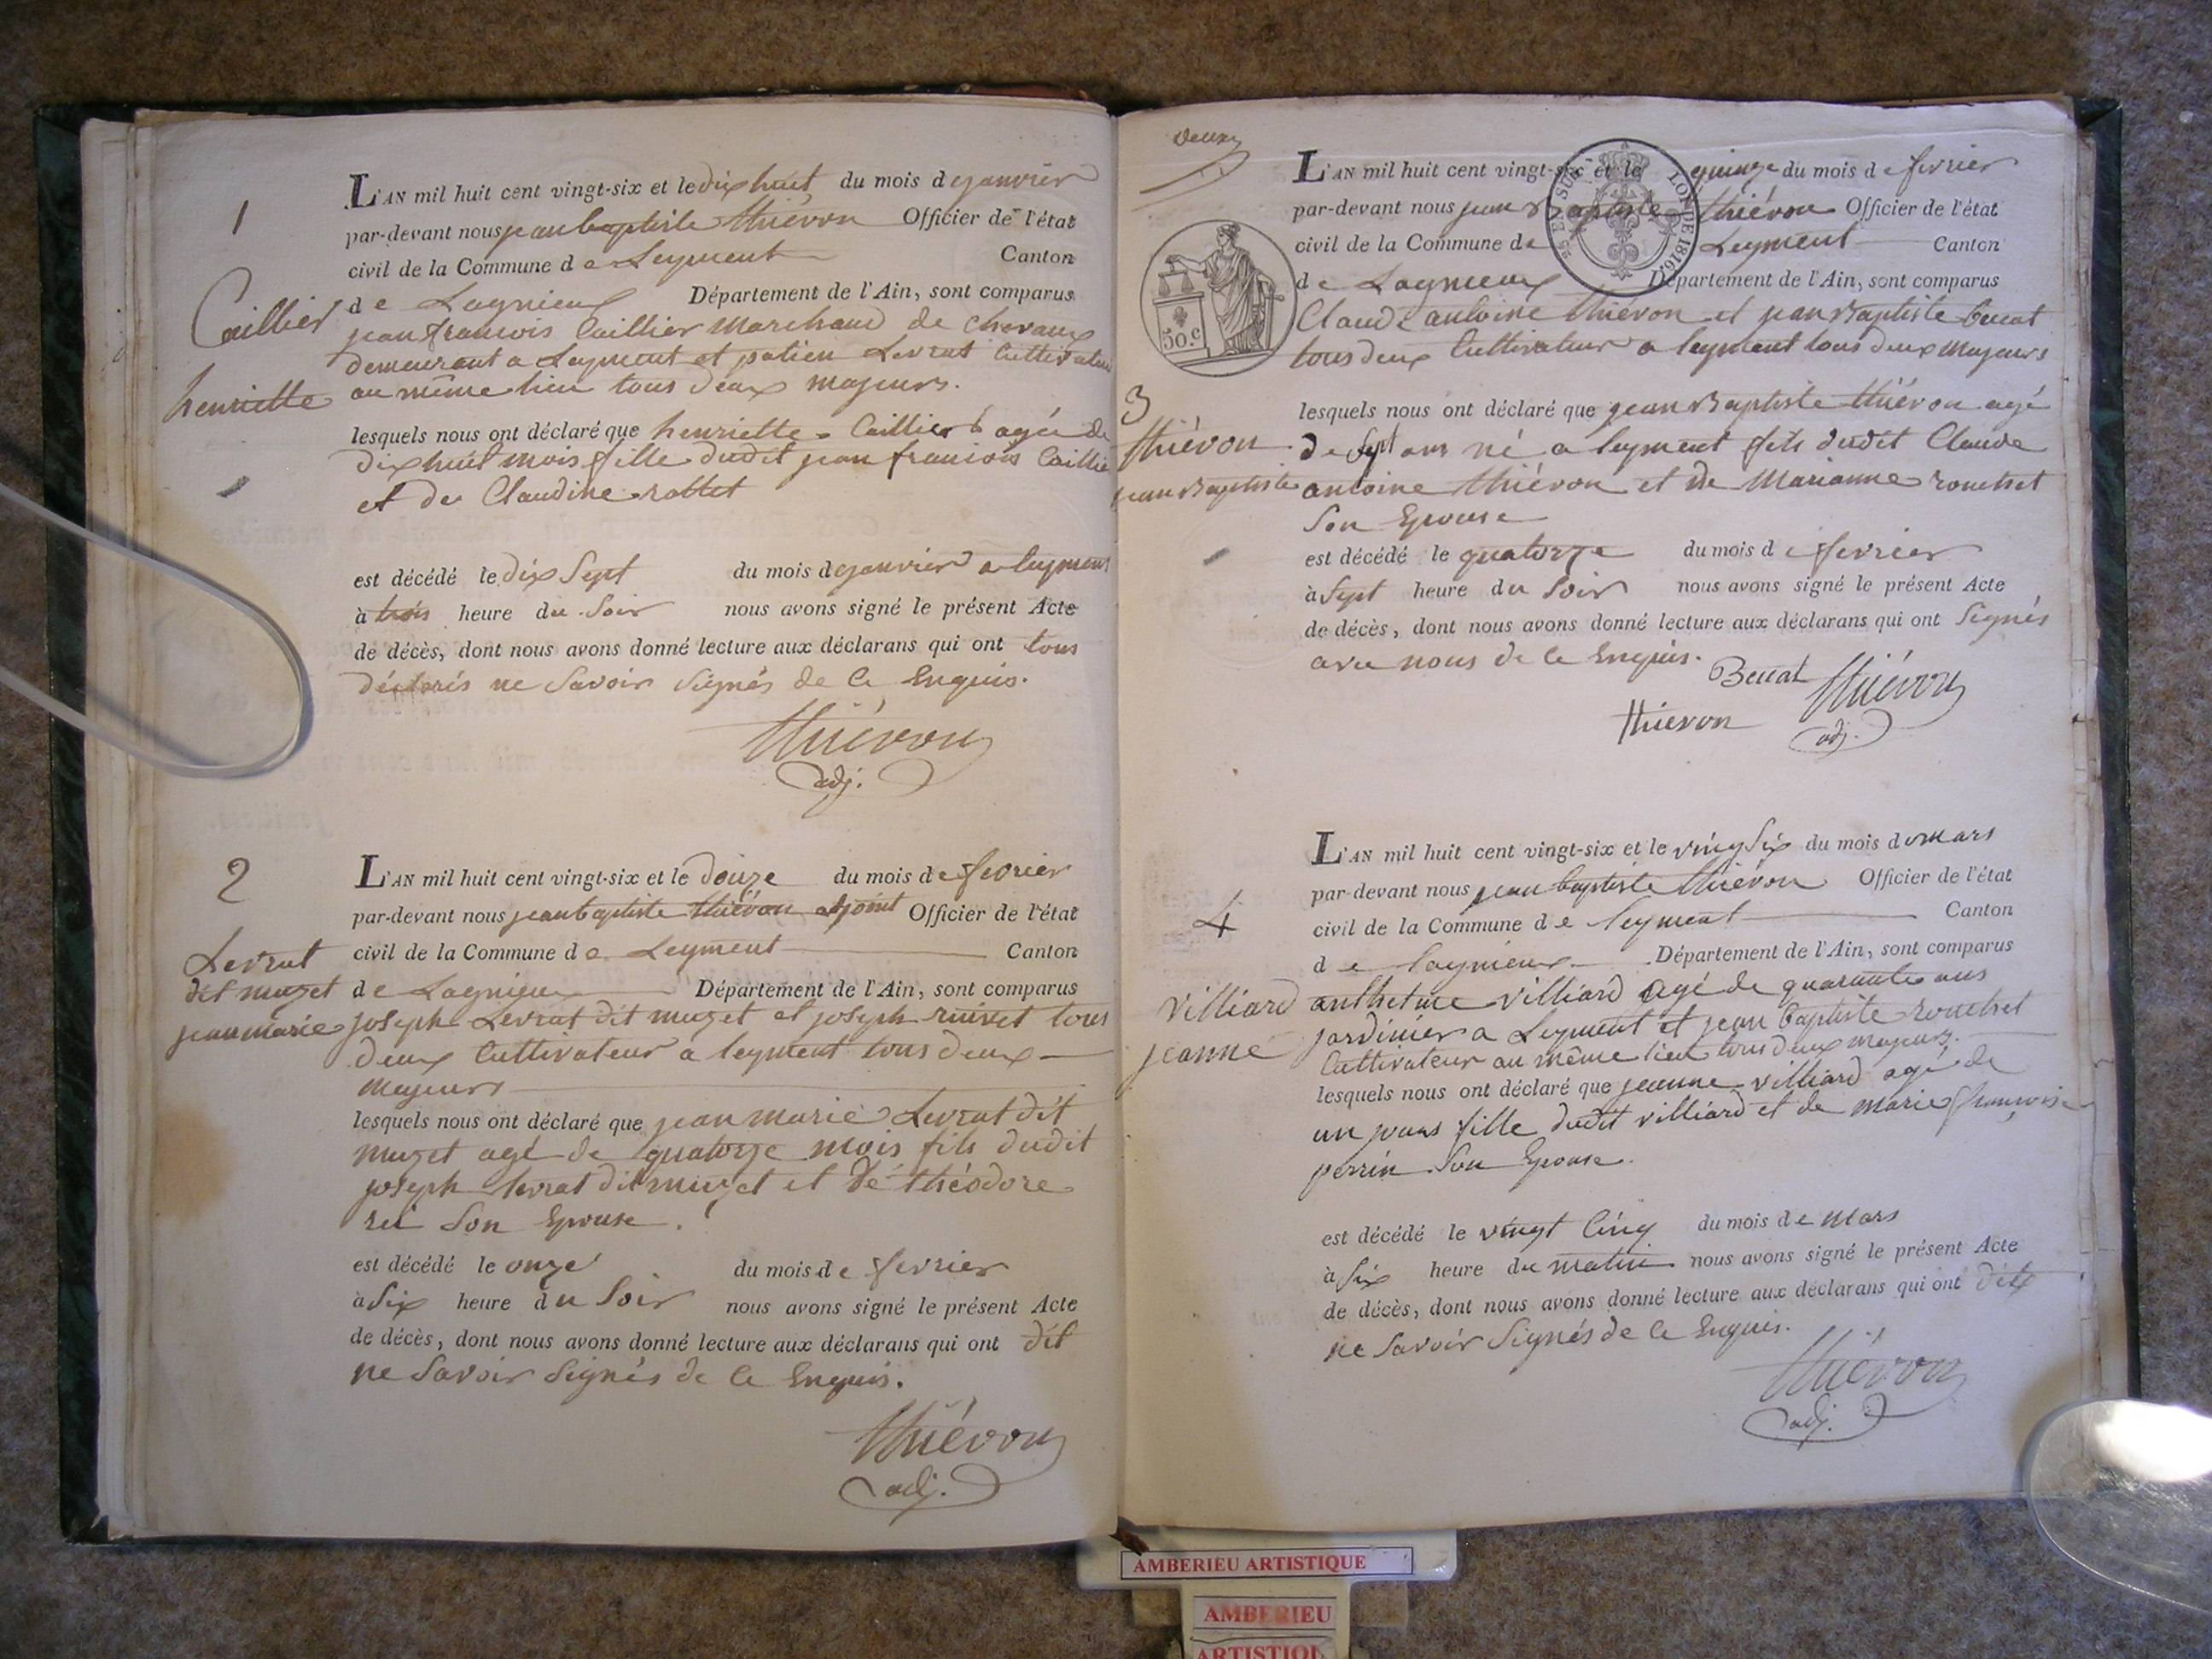 1
L'AN mil huit cent vingt-six et le dix huit du mois de janvier
par-devant nous jean baptiste thiévon Officier de l'état
civil de la Commune de Leyment Canton
de Lagnieux Département de l'Ain, sont comparus
Caillier
henriette
jean francois Caillier Marchand de chevaux
demeurant a Leyment et patien Levrat Cultivateur
au même lieu tous deux majeurs.
lesquels nous ont déclaré que henriette Caillier agée de
dix huit mois fille dudit jean francois Caillier
et de Claudine rottet
est décédé le dix Sept du mois de janvier a leyment
à trois heure du Soir nous avons signé le présent Acte
de décès, dont nous avons donné lecture aux déclarans qui ont tous
déclarés ne Savoir Signés de Ce Enquis.
thiévon
adj.
2
L'AN mil huit cent vingt-six et le douze du mois de fevrier
par-devant nous jean baptiste thiévon adjoint Officier de l'état
civil de la Commune de Leyment Canton
de Lagnieux Département de l'Ain, sont comparus
Levrat
dit muzet
jean marie
joseph Levrat dit muzet et joseph ruivet tous
deux Cultivateur a leyment tous deux
majeurs
lesquels nous ont déclaré que jean marie Levrat dit
muzet agé de quatorze mois fils dudit
joseph levrat dit muzet et de théodore
rei Son Epouse.
est décédé le onze du mois de fevrier
à Six heure du Soir nous avons signé le présent Acte
de décès, dont nous avons donné lecture aux déclarans qui ont dit
ne Savoir Signés de Ce Enquis.
thiévon
adj.
deux
L'AN mil huit cent vingt-six et le quinze du mois de fevrier
par-devant nous jean Baptiste thiévon Officier de l'état
civil de la Commune de Leyment Canton
de Lagnieux Département de l'Ain, sont comparus
50.C
LOI DE 1816.
Claude antoine thiévon et jean Baptiste beccat
tous deux Cultivateur a leyment tous deux majeurs
3
thiévon
jean Baptiste
lesquels nous ont déclaré que jean Baptiste thiévon agé
de Sept ans né a leyment fils dudit Claude
antoine thiévon et de Marianne rouchet
Son Epouse
est décédé le quatorze du mois de fevrier
à Sept heure du Soir nous avons signé le présent Acte
de décès, dont nous avons donné lecture aux déclarans qui ont Signés
avec nous de Ce Enquis.
Beccat thiévon
thievon adj.
4
L'AN mil huit cent vingt-six et le vingt Six du mois de mars
par-devant nous jean baptiste thiévon Officier de l'état
civil de la Commune de leyment Canton
de lagnieux Département de l'Ain, sont comparus
Villiard
jeanne
anthelme villiard agé de quarante ans
jardinier a Leyment et jean baptiste rouchet
Cultivateur au même lieu tous deux majeurs.
lesquels nous ont déclaré que jeanne villiard agé de
un jours fille dudit villiard et de marie françoise
perrin Son Epouse.
est décédé le vingt Cinq du mois de Mars
à Six heure du matin nous avons signé le présent Acte
de décès, dont nous avons donné lecture aux déclarans qui ont dits
ne Savoir Signés de Ce Enquis.
thiévon
adj.
AMBERIEU ARTISTIQUE
AMBERIEU